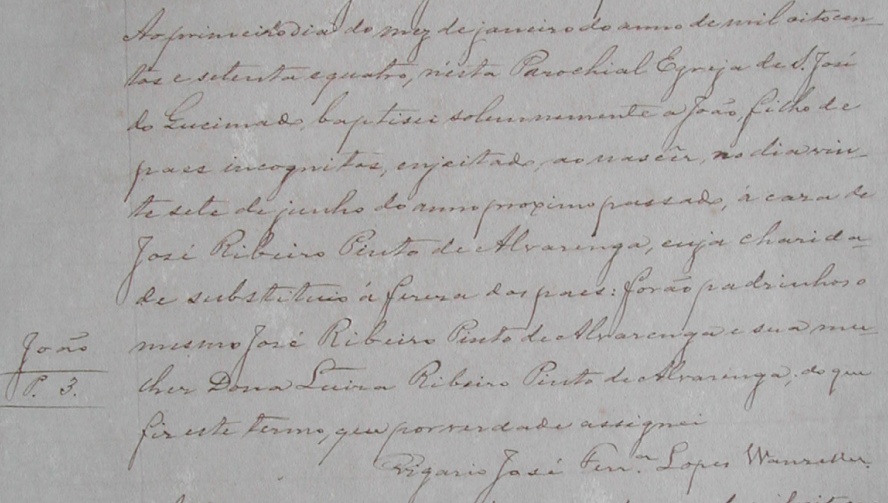 Ao primeiro dia do mez de janeiro do anno de mil oitocen-
tos e setenta e quatro, n'esta Parochial Egreja de S. José
do Queimado, baptisei solemnemente a João, filho de
paes incognitos, engeitado, ao nascêr, no dia vin-
te sete de junho do anno proximo passado, á caza de
José Ribeiro Pinto de Alvarenga, cuja charida-
de substituio á fereza dos paes: forão padrinhos o
mesmo José Ribeiro Pinto de Alvarenga e sua mu-
lher Dona Luiza Ribeiro Pinto de Alvarenga; do que
João
P. 3.
fiz este termo, que por verdade assignei
Vigario José Fern.ᵃ Lopes Wanzeller.